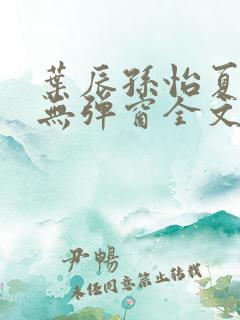 葉辰孫怡夏
無彈窗全文
尹暢
未經同意禁止轉載